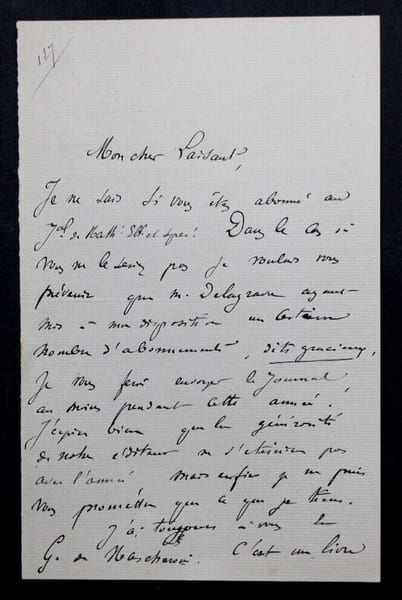 127
Mon cher Laisant,
Je ne sais si vous êtes abonné au
Jal de Math. Elt. et Spec.! Dans le cas où
vous ne le seriez pas je voulais vous
prévenir que M. Delagrave ayant
mis à ma disposition un certain
nombre d'abonnements, dits gracieux,
Je vous ferai envoyer le Journal,
au moins pendant cette année.
J'espère bien que la générosité
de notre éditeur ne s'éteindra pas
avec l'année, mais enfin je ne puis
vous promettre que ce que je tiens.
J'ai toujours à vous la
G. de Mascheroni. C'est un livre